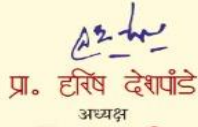 प्रा. हरिष देशपांडे
अध्यक्ष